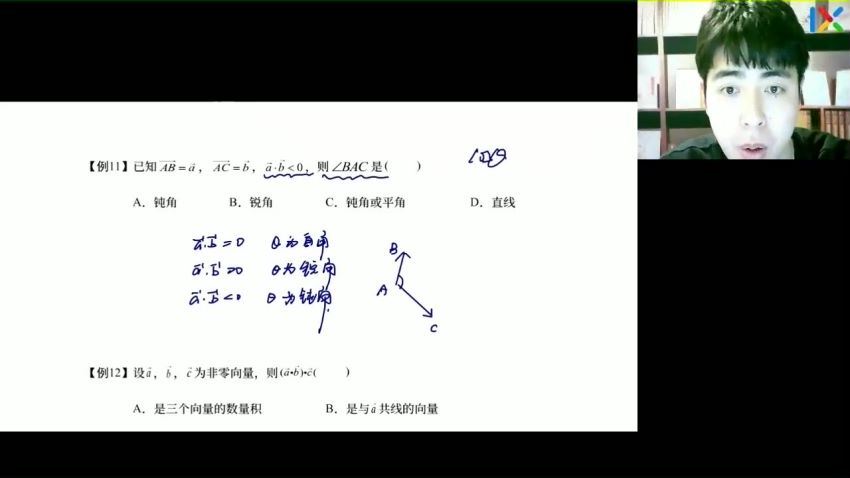 【例11】已知 $\overrightarrow{AB}=\vec{a}$，$\overrightarrow{AC}=\vec{b}$，$\vec{a}\cdot\vec{b}<0$，则∠BAC是(　　)
A．钝角　B．锐角　C．钝角或平角　D．直线
$\vec{a}\cdot\vec{b}=0$　θ为直角
$\vec{a}\cdot\vec{b}>0$　θ为锐角
$\vec{a}\cdot\vec{b}<0$　θ为钝角
B
A
C
【例12】设$\vec{a}$，$\vec{b}$，$\vec{c}$为非零向量，则$(\vec{a}\cdot\vec{b})\cdot\vec{c}$(　　)
A．是三个向量的数量积　B．是与$\vec{a}$共线的向量